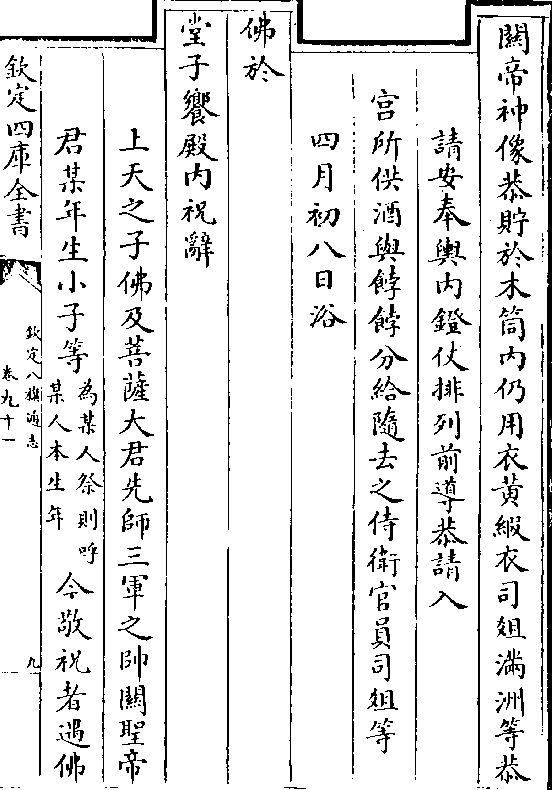 關帝神像恭貯於木筒内仍用衣黄緞衣司俎滿洲等恭
請安奉輿内鐙仗排列前導恭請入
宫所供酒與餑餑分給隨去之侍衛官員司俎等
四月初八日浴
佛於
堂子饗殿内祝辭
上天之子佛及菩薩大君先師三軍之帥關聖帝
君某年生小子等為某人祭則呼某人本生年今敬祝者遇佛
欽定四庫全書
欽定八旗通志
卷九十一
九